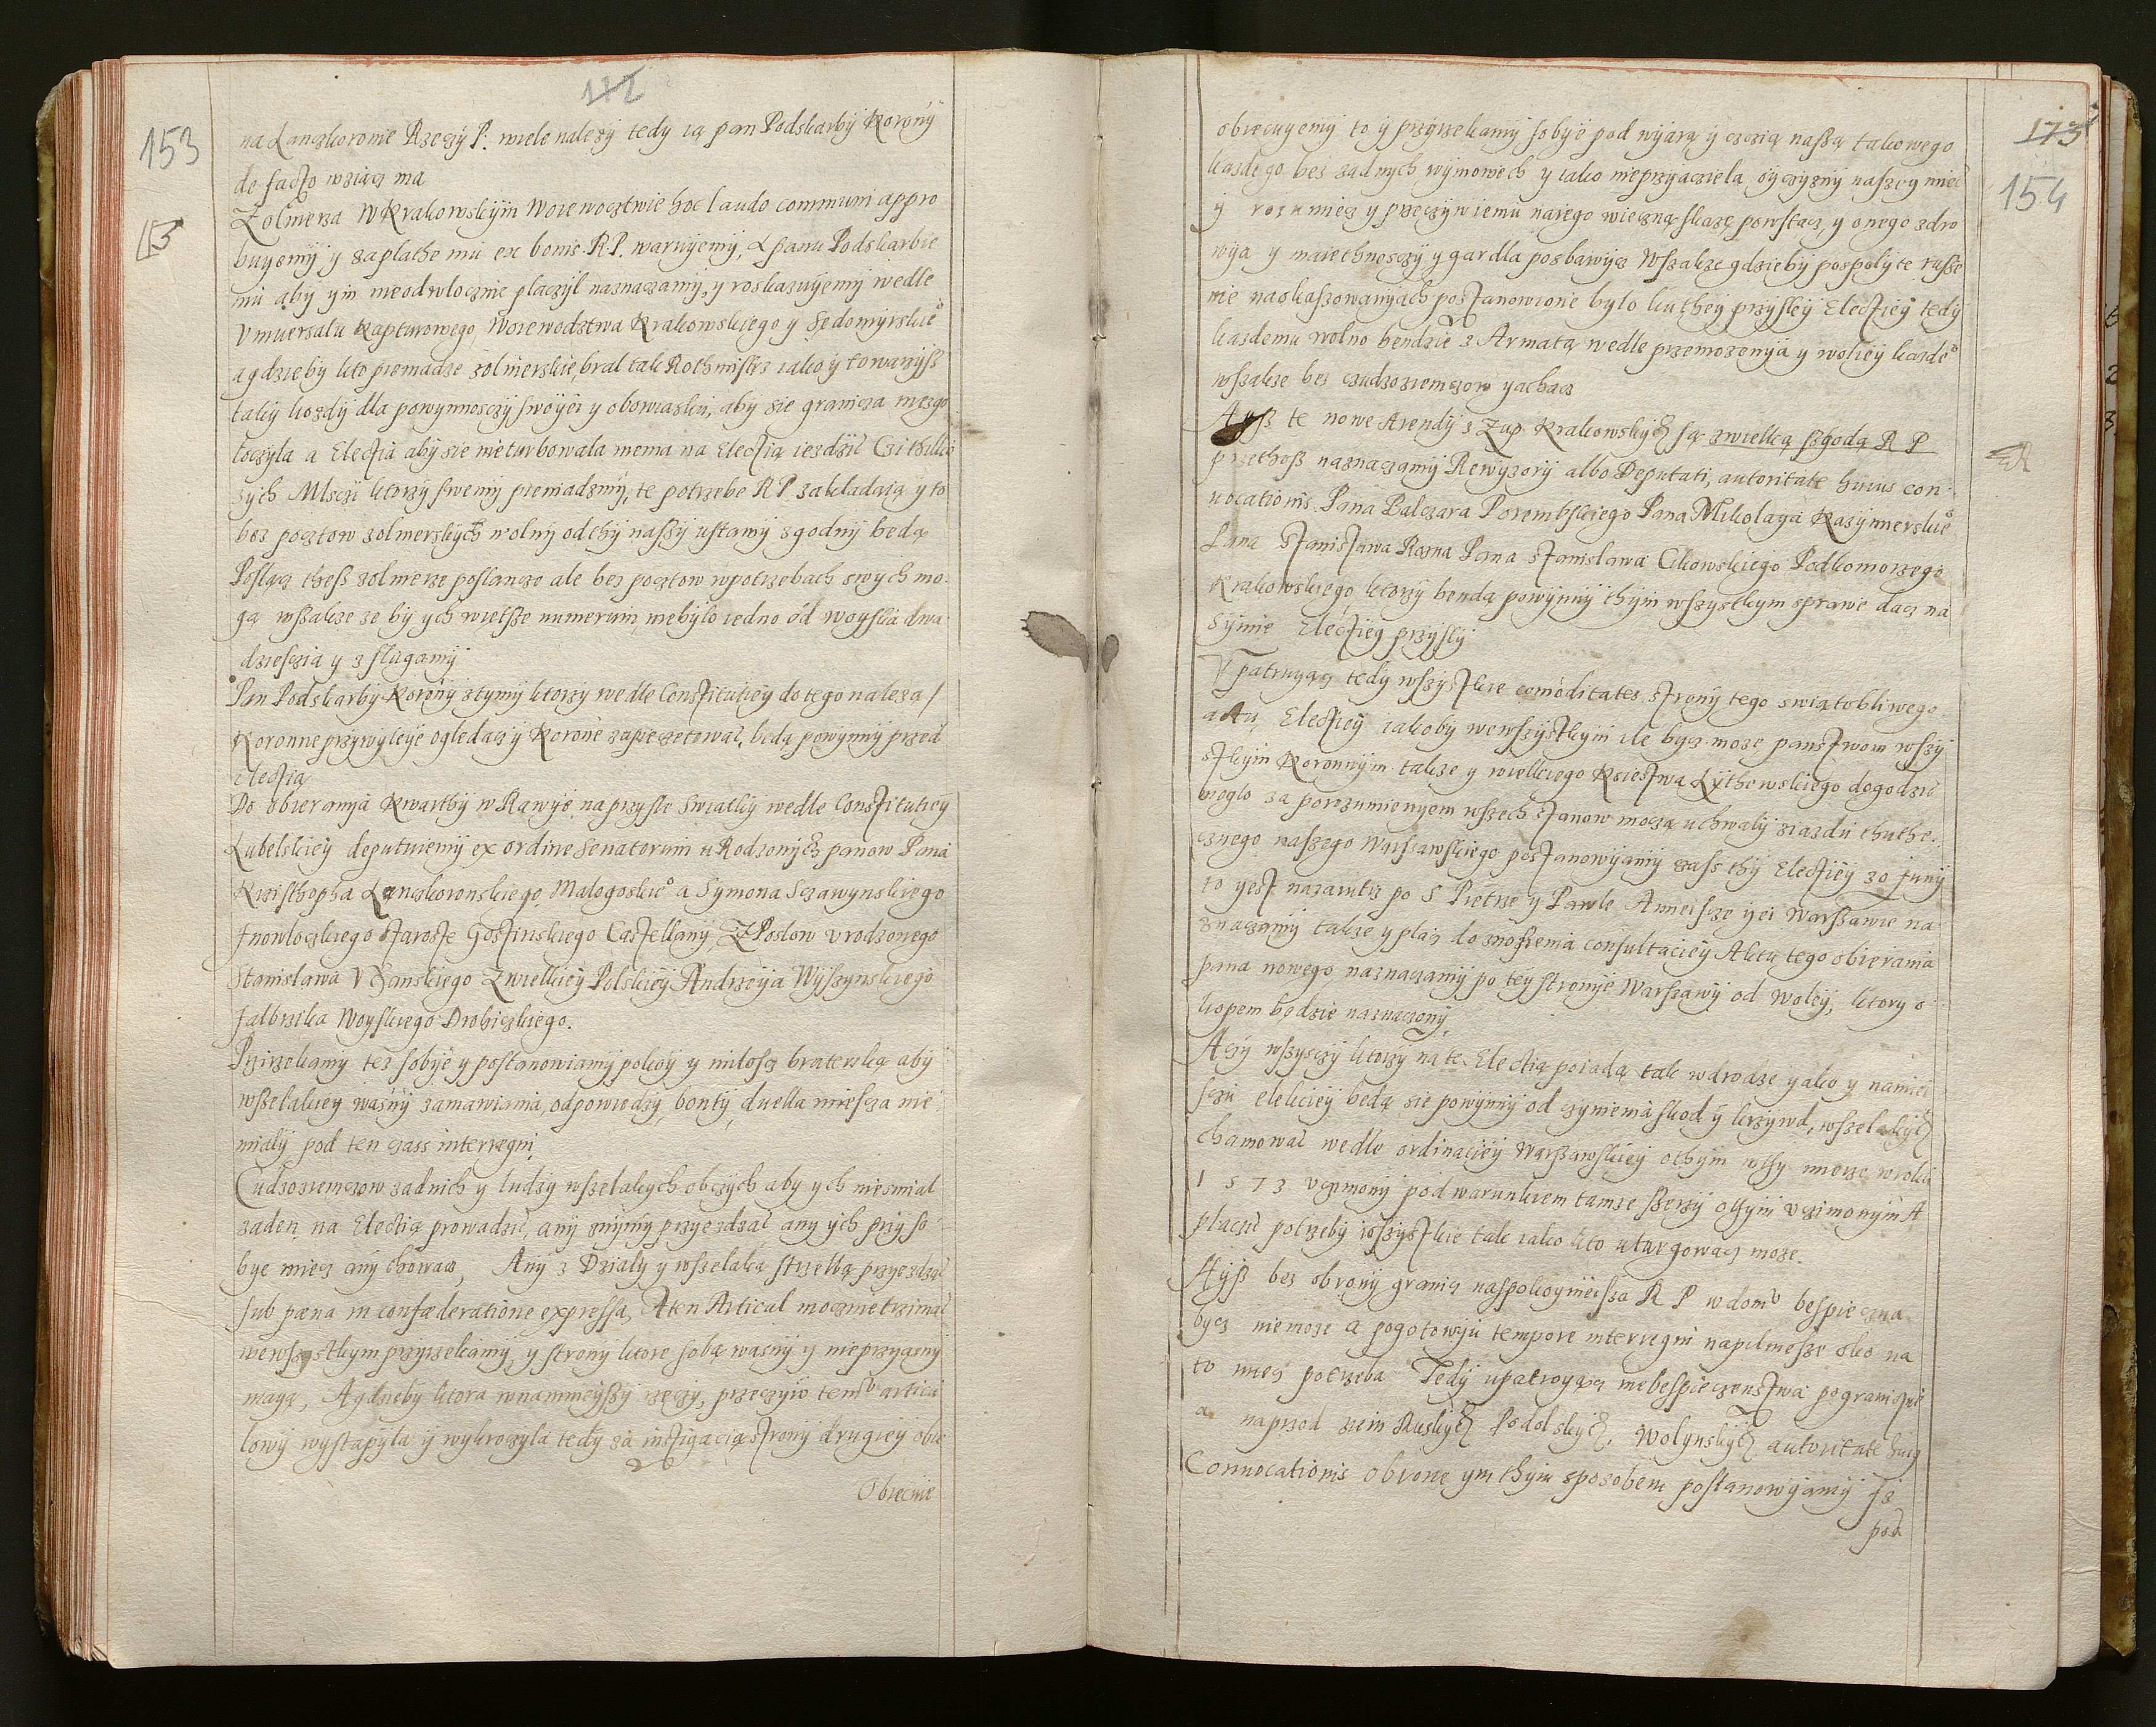 112
153
na Lanczkoronie Rzeczÿ P. wiele nalezÿ tedy ią pan Podskarbÿ Koronÿ
de facto wziącz ma
Zolnierza W Krakowskÿm Woiewocztwie hoc laudo communi appro
buyemÿ y zaplathe mu ex bonis R.P. waruyemÿ, A panu Podskarbie
mu abÿ ÿm nieodwlocznie placzÿl naznaczamÿ, y roskazuÿemÿ wedle
Vniuersalu Kapturowego, Woiewodztwa Krakowskiego y Sędomÿrskie°
a gdzieby kto pieniadze zolnierskie, bral tak Rothmistrz iako ÿ towarzÿsz
takÿ kozdÿ dla powynnosczÿ swoÿeÿ y obowiasku, abÿ sie granicza niezgo
loczÿla a Electia abÿ sie nieturbowala niema na Electią iezdzic Czi thilko
Ich Mlsczi ktorzÿ swemÿ pieniadzmÿ, te potrzebe RP. zakladaią ÿ to
bez pocztow zolnierskÿch wolnÿ od thÿ naszÿ ustawÿ zgodnÿ bedą
Poslacz thesz zolnierze poslancze ale bez pocztow w potrzebach swych mo
gą wszakze ze bÿ ÿch wietsze numerum, niebÿlo iedno od woÿska dwa
dziesczia y z slugamÿ
Pan Podskarbÿ Koronÿ z tÿmÿ ktorzÿ wedle Constitutieÿ do tego naleza /
Koronne przÿwÿleÿe ogledacz ÿ Korone zapieczetowac, bedą powÿnnÿ przed
electią
Do obierania Kwarthÿ w Rawÿe na przysle Swiatkÿ wedle Constitutieÿ
Lubelskieÿ deputuiemÿ ex ordine Senatorum uRodzonÿch panow Pana
Krzisthopha Lanczkoronskiego, Malogoskie° a Sÿmona Sczawynskiego
Inowloczkiego Staroste Gostinskiego Castellanÿ Z Poslow vrodzonego
Stanislawa Vhanskiego Z wielkieÿ Polskieÿ Andrzeÿa Wÿszÿnskiego
Jalbrzika Woÿskiego Drohiczkiego.
Prziezekamy tez sobÿe y postanowiamÿ pokoÿ y milosz braterską abÿ
wszelakieÿ wasnÿ zamawiania, odpowiedzÿ, bontÿ, duella miesca nie
mialÿ pod ten czass interregni.
Cudzoziemczow zadnich y ludzÿ wszelakych obczÿch aby ych niesmial
zaden na Electią prowadzic, anÿ znÿmÿ przyezdzac any ÿch przÿ so
bye miecz anÿ chowacz, Anÿ z Dzialÿ y wszelaką strzelbą przyezdzac
sub pæna in confæderatione expressa, A ten Articul mocznie trzimac
wewszÿstkym przÿrzekamÿ, y stronÿ ktore sobą wasnÿ y nieprzyaznÿ
maÿą, A gdziebÿ ktora w namnieÿszÿ rzeczÿ, przeczÿw temu articu
lowÿ wystapÿla ÿ wykroczyla tedÿ za instigacią stronÿ drugieÿ obie
Obiecuie
173
154
obiecuyemÿ to ÿ przÿrzekamÿ sobÿe pod wÿarą y czczią naszą takowego
kazdego bes zadnych wÿmowech y iako nieprzyacziela oÿczÿznÿ naszeÿ miec
ÿ rozumiecz y przeczÿw iemu naiego wieczną skazę powstacz, y onego zdro
wÿa y maiethnosczÿ y gardla pozbawÿcz wszakze gdziebÿ pospolÿte rusze
nie na okazowanÿach postanowione bÿlo ku theÿ przyslÿ Electieÿ tedÿ
kazdemu wolno bendzie z Armatą wedle przemozenÿa y wolieÿ kazde°
wszakze bez czudzoziemczow yachacz
Aÿsz te nowe Arendÿ z Zup Krakowskÿch są z wielką szkodą R P
przethosz naznaczamÿ Rewÿzorÿ albo Deputati, autoritate huius con
uocationis Pana Balczara Porembskiego Pana Mikolaÿa Kazÿmierskie°
Pana Stanislawa Rozna Pana Stanislawa Cikowskiego Podkomorzego
Krakowskiego, ktorzÿ bendą powÿnnÿ thÿm wszystkym sprawe dacz na
Sÿmie Electieÿ przÿslÿ
Vpatruyącz tedy wszÿstkie comoditates, stronÿ tego swiątobliwego
actu Electieÿ iakoby wewszÿstkÿm ile bycz moze panstwom wszÿ
stkÿm Koronnÿm takze y wielkiego Ksiestwa Lÿthewskiego dogodzic
moglo za porozumienyem wszech stanow moczą uchwalÿ ziazdu thuthe
cznego naszego Warszawskiego postanowÿamÿ czass thÿ Electieÿ 30 Junÿ
to ÿest nazaiutrz po S Pietrze y Pawle A mieiscze ÿei Warszawie na
znaczamÿ takze y placz do znoszenia consultacieÿ Aktu tego obierania
pana nowego naznaczamÿ po teÿ stronÿe Warszawÿ od Wolÿ, ktory o
kopem będzie naznaczonÿ,
Aczÿ wszysczÿ ktorzÿ na te Electią poiadą tak w drodze yako y namiei
sczu elekcieÿ bedą sie powynnÿ od czynienia skod ÿ krzywd, wszelakÿch
chamowac wedle ordinacieÿ Warszawskieÿ othÿm wthÿ mierze w roku
1573 vczÿnionÿ pod warunkiem tamze szerzÿ othÿm vczinionÿm A
placzic potrzebÿ wszÿstkie tak iako kto utargowacz moze.
Aÿsz bes obronÿ granicz naspokoynieisza R P w domu bespieczna
bycz niemoze a pogotowÿu tempore interregni napilniesze oko na
to miec potrzeba Tedÿ upatruyącz niebespieczenstwa pograniczne
a naprzod ziem Ruskÿch Podolskÿch, Wolynskÿch autoritate huius
Conuocationis obronę ym thÿm sposobem postanowÿamÿ Jz
pod